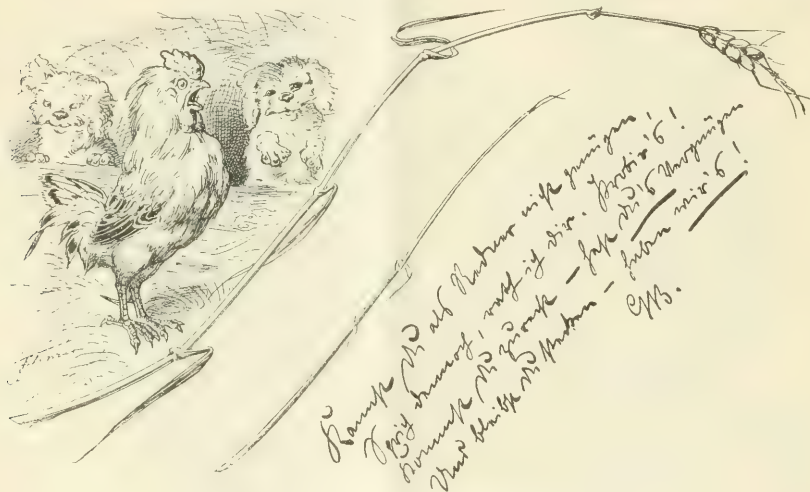 Kannst Du als Redner nicht genügen,
Sprich dennoch, rath ich Dir. Probir's!
Kommst Du zurecht – hast Du's Vergnügen
Und bleibst Du stecken – haben wir's!